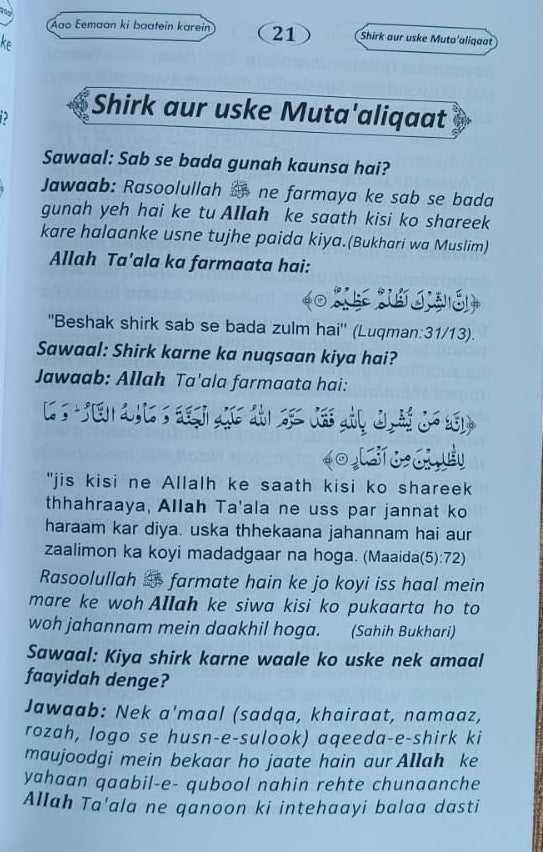 Aao Eemaan ki baatein karein
21
Shirk aur uske Muta'aliqaat
ke
i?
Shirk aur uske Muta'aliqaat
Sawaal: Sab se bada gunah kaunsa hai?
Jawaab: Rasoolullah ﷺ ne farmaya ke sab se bada
gunah yeh hai ke tu Allah ke saath kisi ko shareek
kare halaanke usne tujhe paida kiya.(Bukhari wa Muslim)
Allah Ta'ala ka farmaata hai:
﴿اِنَّ الشِّرْكَ لَظُلْمٌ عَظِيْمٌ﴾
"Beshak shirk sab se bada zulm hai" (Luqman:31/13).
Sawaal: Shirk karne ka nuqsaan kiya hai?
Jawaab: Allah Ta'ala farmaata hai:
﴿اِنَّهٗ مَنْ يُّشْرِكْ بِاللّٰهِ فَقَدْ حَرَّمَ اللّٰهُ عَلَيْهِ الْجَنَّةَ وَ مَاْوٰىهُ النَّارُ ؕ وَ مَا
لِلظّٰلِمِيْنَ مِنْ اَنْصَارٍ﴾
"jis kisi ne Allalh ke saath kisi ko shareek
thhahraaya, Allah Ta'ala ne uss par jannat ko
haraam kar diya. uska thhekaana jahannam hai aur
zaalimon ka koyi madadgaar na hoga. (Maaida(5):72)
Rasoolullah ﷺ farmate hain ke jo koyi iss haal mein
mare ke woh Allah ke siwa kisi ko pukaarta ho to
woh jahannam mein daakhil hoga. (Sahih Bukhari)
Sawaal: Kiya shirk karne waale ko uske nek amaal
faayidah denge?
Jawaab: Nek a'maal (sadqa, khairaat, namaaz,
rozah, logo se husn-e-sulook) aqeeda-e-shirk ki
maujoodgi mein bekaar ho jaate hain aur Allah ke
yahaan qaabil-e- qubool nahin rehte chunaanche
Allah Ta'ala ne qanoon ki intehaayi balaa dasti